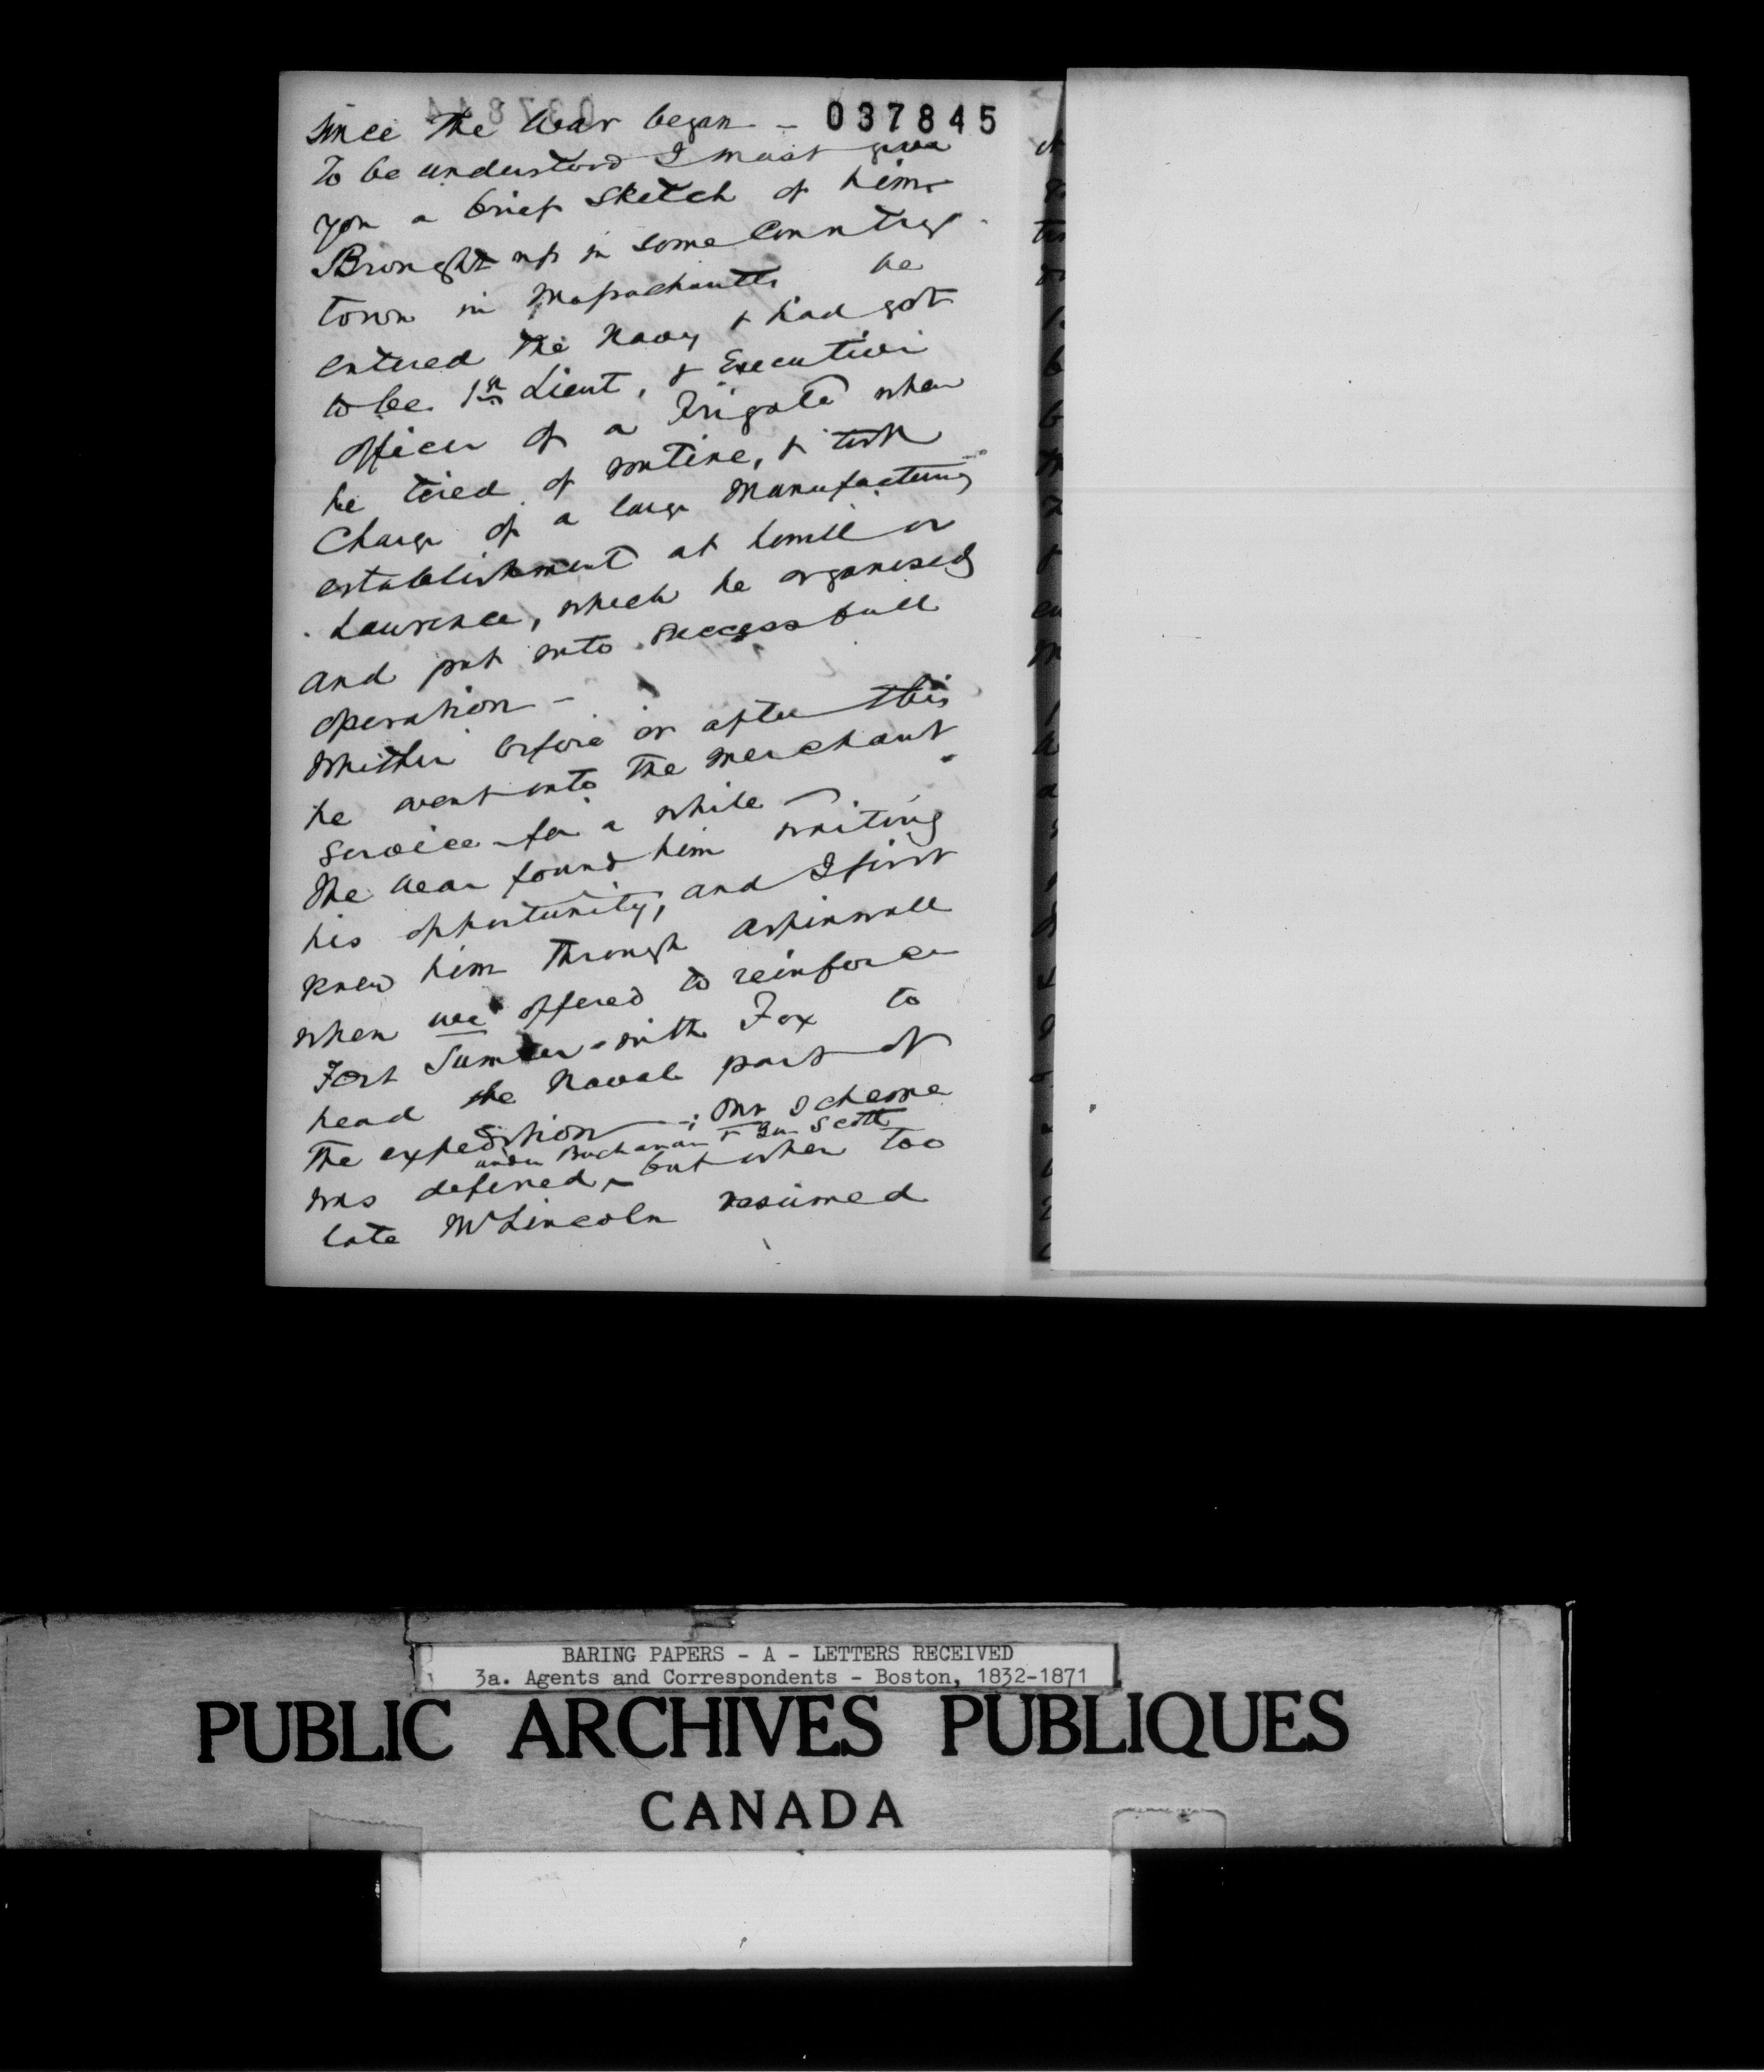 037845
since the War began -
To be understood I must give
you a brief sketch of him -
Brought up in some Country
town in Massachusetts he
entered the Navy & had got
to be 1st Lieut, & Executive
officer of a Frigate when
he tired of routine, & took
Charge of a large Manufacturing
establishment at Lowell or
Lawrence, which he organised
and put into successfull
operation -
Whether before or after this
he went into the merchant
service for a while -
The War found him waiting
his opportunity, and I first
knew him through Aspinwall
when we offered to reinforce
Fort Sumter with Fox to
head the Naval part of
the expedition - ; Our Scheme
under Buchanan & Gen Scott
was defered, but when too
late Mr Lincoln resumed
BARING PAPERS - A - LETTERS RECEIVED
3a. Agents and Correspondents - Boston, 1832-1871
PUBLIC ARCHIVES PUBLIQUES
CANADA